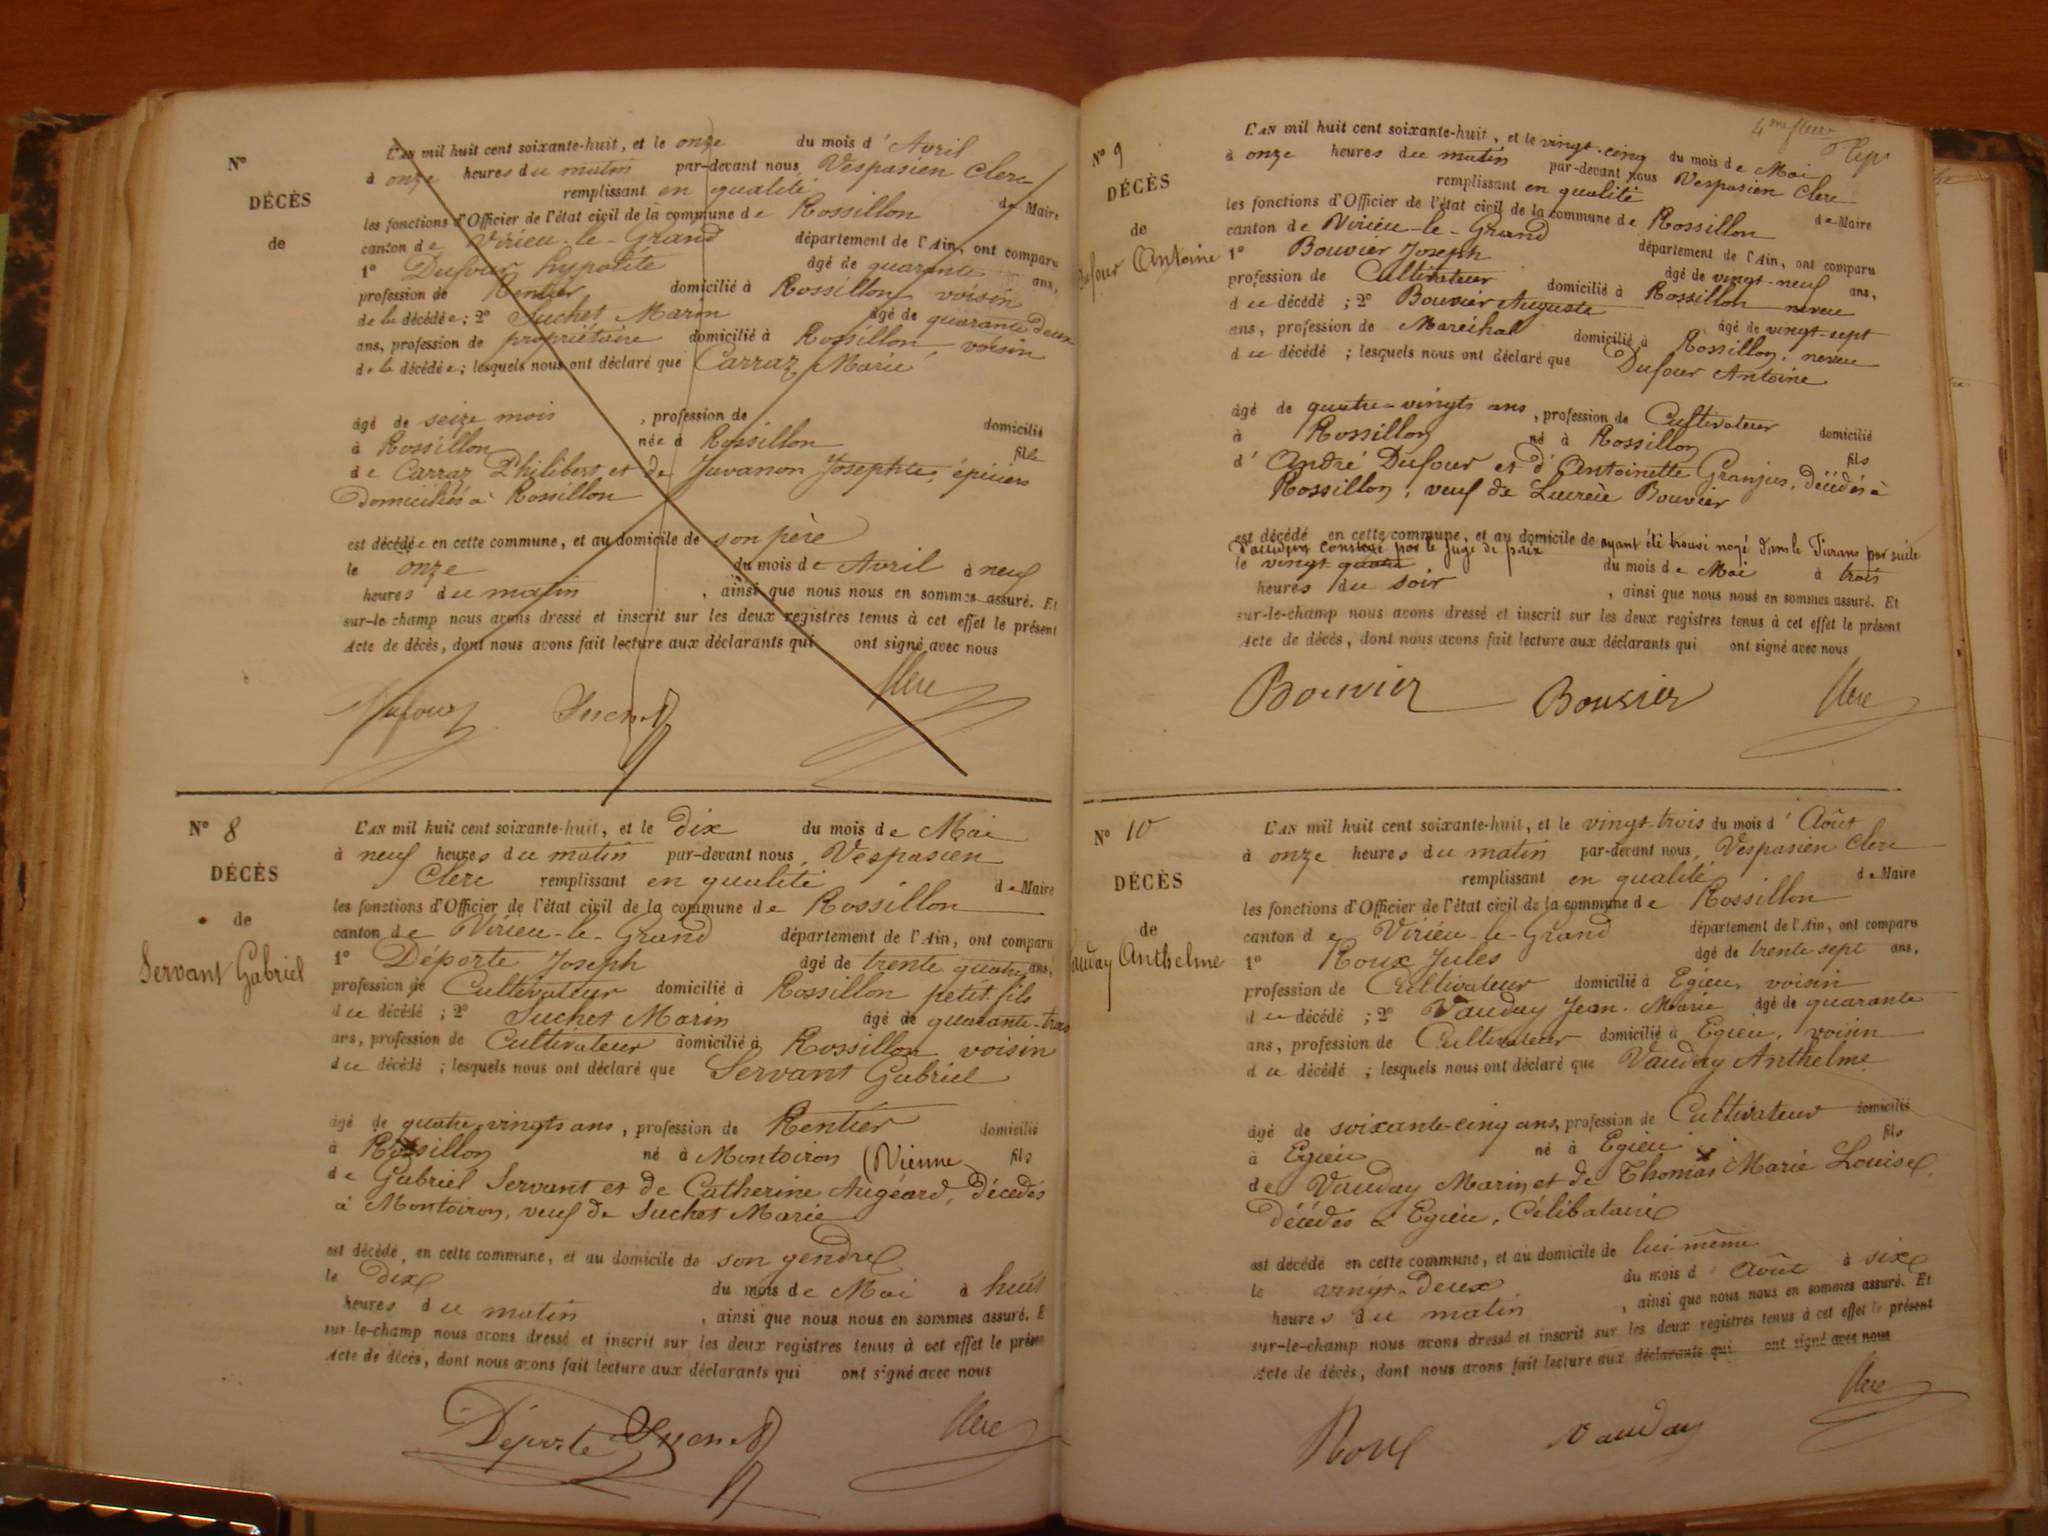 N°
DÉCÈS
de
L'AN mil huit cent soixante-huit, et le onze du mois d'Avril
à onze heures du matin par-devant nous Vespasien Clerc
remplissant en qualité de Maire
les fonctions d'Officier de l'état civil de la commune de Rossillon
canton de Virieu-le-Grand département de l'Ain, ont comparu
1° Dufour hypolite âgé de quarante ans,
profession de Rentier domicilié à Rossillon voisin
de la décédée; 2° Suchet Marin âgé de quarante deux
ans, profession de propriétaire domicilié à Rossillon voisin
de la décédée; lesquels nous ont déclaré que Carraz Marie
âgé de seize mois, profession de domicilié
à Rossillon née à Rossillon fille
de Carraz Philibert et de Juvanon Josephte, épiciers
domiciliés à Rossillon
est décédée en cette commune, et au domicile de son père
le onze du mois de Avril à neuf
heures du matin, ainsi que nous nous en sommes assuré. Et
sur-le-champ nous avons dressé et inscrit sur les deux registres tenus à cet effet le présent
Acte de décès, dont nous avons fait lecture aux déclarants qui ont signé avec nous
Dufour Suchet Clerc
N° 8
DÉCÈS
de
Servant Gabriel
L'AN mil huit cent soixante-huit, et le dix du mois de Mai
à neuf heures du matin par-devant nous Vespasien
Clerc remplissant en qualité de Maire
les fonctions d'Officier de l'état civil de la commune de Rossillon
canton de Virieu-le-Grand département de l'Ain, ont comparu
1° Déporte Joseph âgé de trente quatre ans,
profession de Cultivateur domicilié à Rossillon petit fils
du décédé; 2° Suchet Marin âgé de quarante-trois
ans, profession de Cultivateur domicilié à Rossillon voisin
du décédé; lesquels nous ont déclaré que Servant Gabriel
âgé de quatre-vingts ans, profession de Rentier domicilié
à Rossillon né à Montoiron (Vienne fils
de Gabriel Servant et de Catherine Augéard, décédés
à Montoiron, veuf de Suchet Marie
est décédé en cette commune, et au domicile de son gendre
le dix du mois de Mai à huit
heures du matin, ainsi que nous nous en sommes assuré. E
sur-le-champ nous avons dressé et inscrit sur les deux registres tenus à cet effet le présen
Acte de décès, dont nous avons fait lecture aux déclarants qui ont signé avec nous
Déporte Suchet Clerc
N° 9
DÉCÈS
de
Dufour Antoine
L'AN mil huit cent soixante-huit, et le vingt-cinq du mois de Mai
à onze heures du matin par-devant nous Vespasien Clerc
remplissant en qualité de Maire
les fonctions d'Officier de l'état civil de la commune de Rossillon
canton de Virieu-le-Grand département de l'Ain, ont comparu
1° Bouvier Joseph âgé de vingt-neuf ans,
profession de Cultivateur domicilié à Rossillon neveu
du décédé; 2° Bouvier Auguste âgé de vingt-sept
ans, profession de Maréchal domicilié à Rossillon, neveu
du décédé; lesquels nous ont déclaré que Dufour Antoine
âgé de quatre-vingts ans, profession de Cultivateur domicilié
à Rossillon né à Rossillon fils
d'André Dufour et d'Antoinette Granjus, décédés à
Rossillon; veuf de Lucrèce Bouvier
est décédé en cette commune, et au domicile de ayant été trouvé noyé dans le Furans par suite
d'accident constaté par le juge de paix
le vingt quatre du mois de Mai à trois
heures du soir, ainsi que nous nous en sommes assuré. Et
sur-le-champ nous avons dressé et inscrit sur les deux registres tenus à cet effet le présent
Acte de décès, dont nous avons fait lecture aux déclarants qui ont signé avec nous
Bouvier Bouvier Clerc
N° 10
DÉCÈS
de
Vauday Anthelme
L'AN mil huit cent soixante-huit, et le vingt-trois du mois d'Août
à onze heures du matin par-devant nous Vespasien Clerc
remplissant en qualité de Maire
les fonctions d'Officier de l'état civil de la commune de Rossillon
canton de Virieu-le-Grand département de l'Ain, ont comparu
1° Roux Jules âgé de trente-sept ans,
profession de Cultivateur domicilié à Egieu, voisin
du décédé; 2° Vauday Jean-Marie âgé de quarante
ans, profession de Cultivateur domicilié à Egieu, voisin
du décédé; lesquels nous ont déclaré que Vauday Anthelme
âgé de soixante-cinq ans, profession de Cultivateur domicilié
à Egieu né à Egieu fils
de Vauday Marin et de Thomas Marie Louise
décédés à Egieu, Célibataire
est décédé en cette commune, et au domicile de lui-même
le vingt-deux du mois d'Août à six
heures du matin, ainsi que nous nous en sommes assuré. Et
sur-le-champ nous avons dressé et inscrit sur les deux registres tenus à cet effet le présent
Acte de décès, dont nous avons fait lecture aux déclarants qui ont signé avec nous
Roux Vauday Clerc